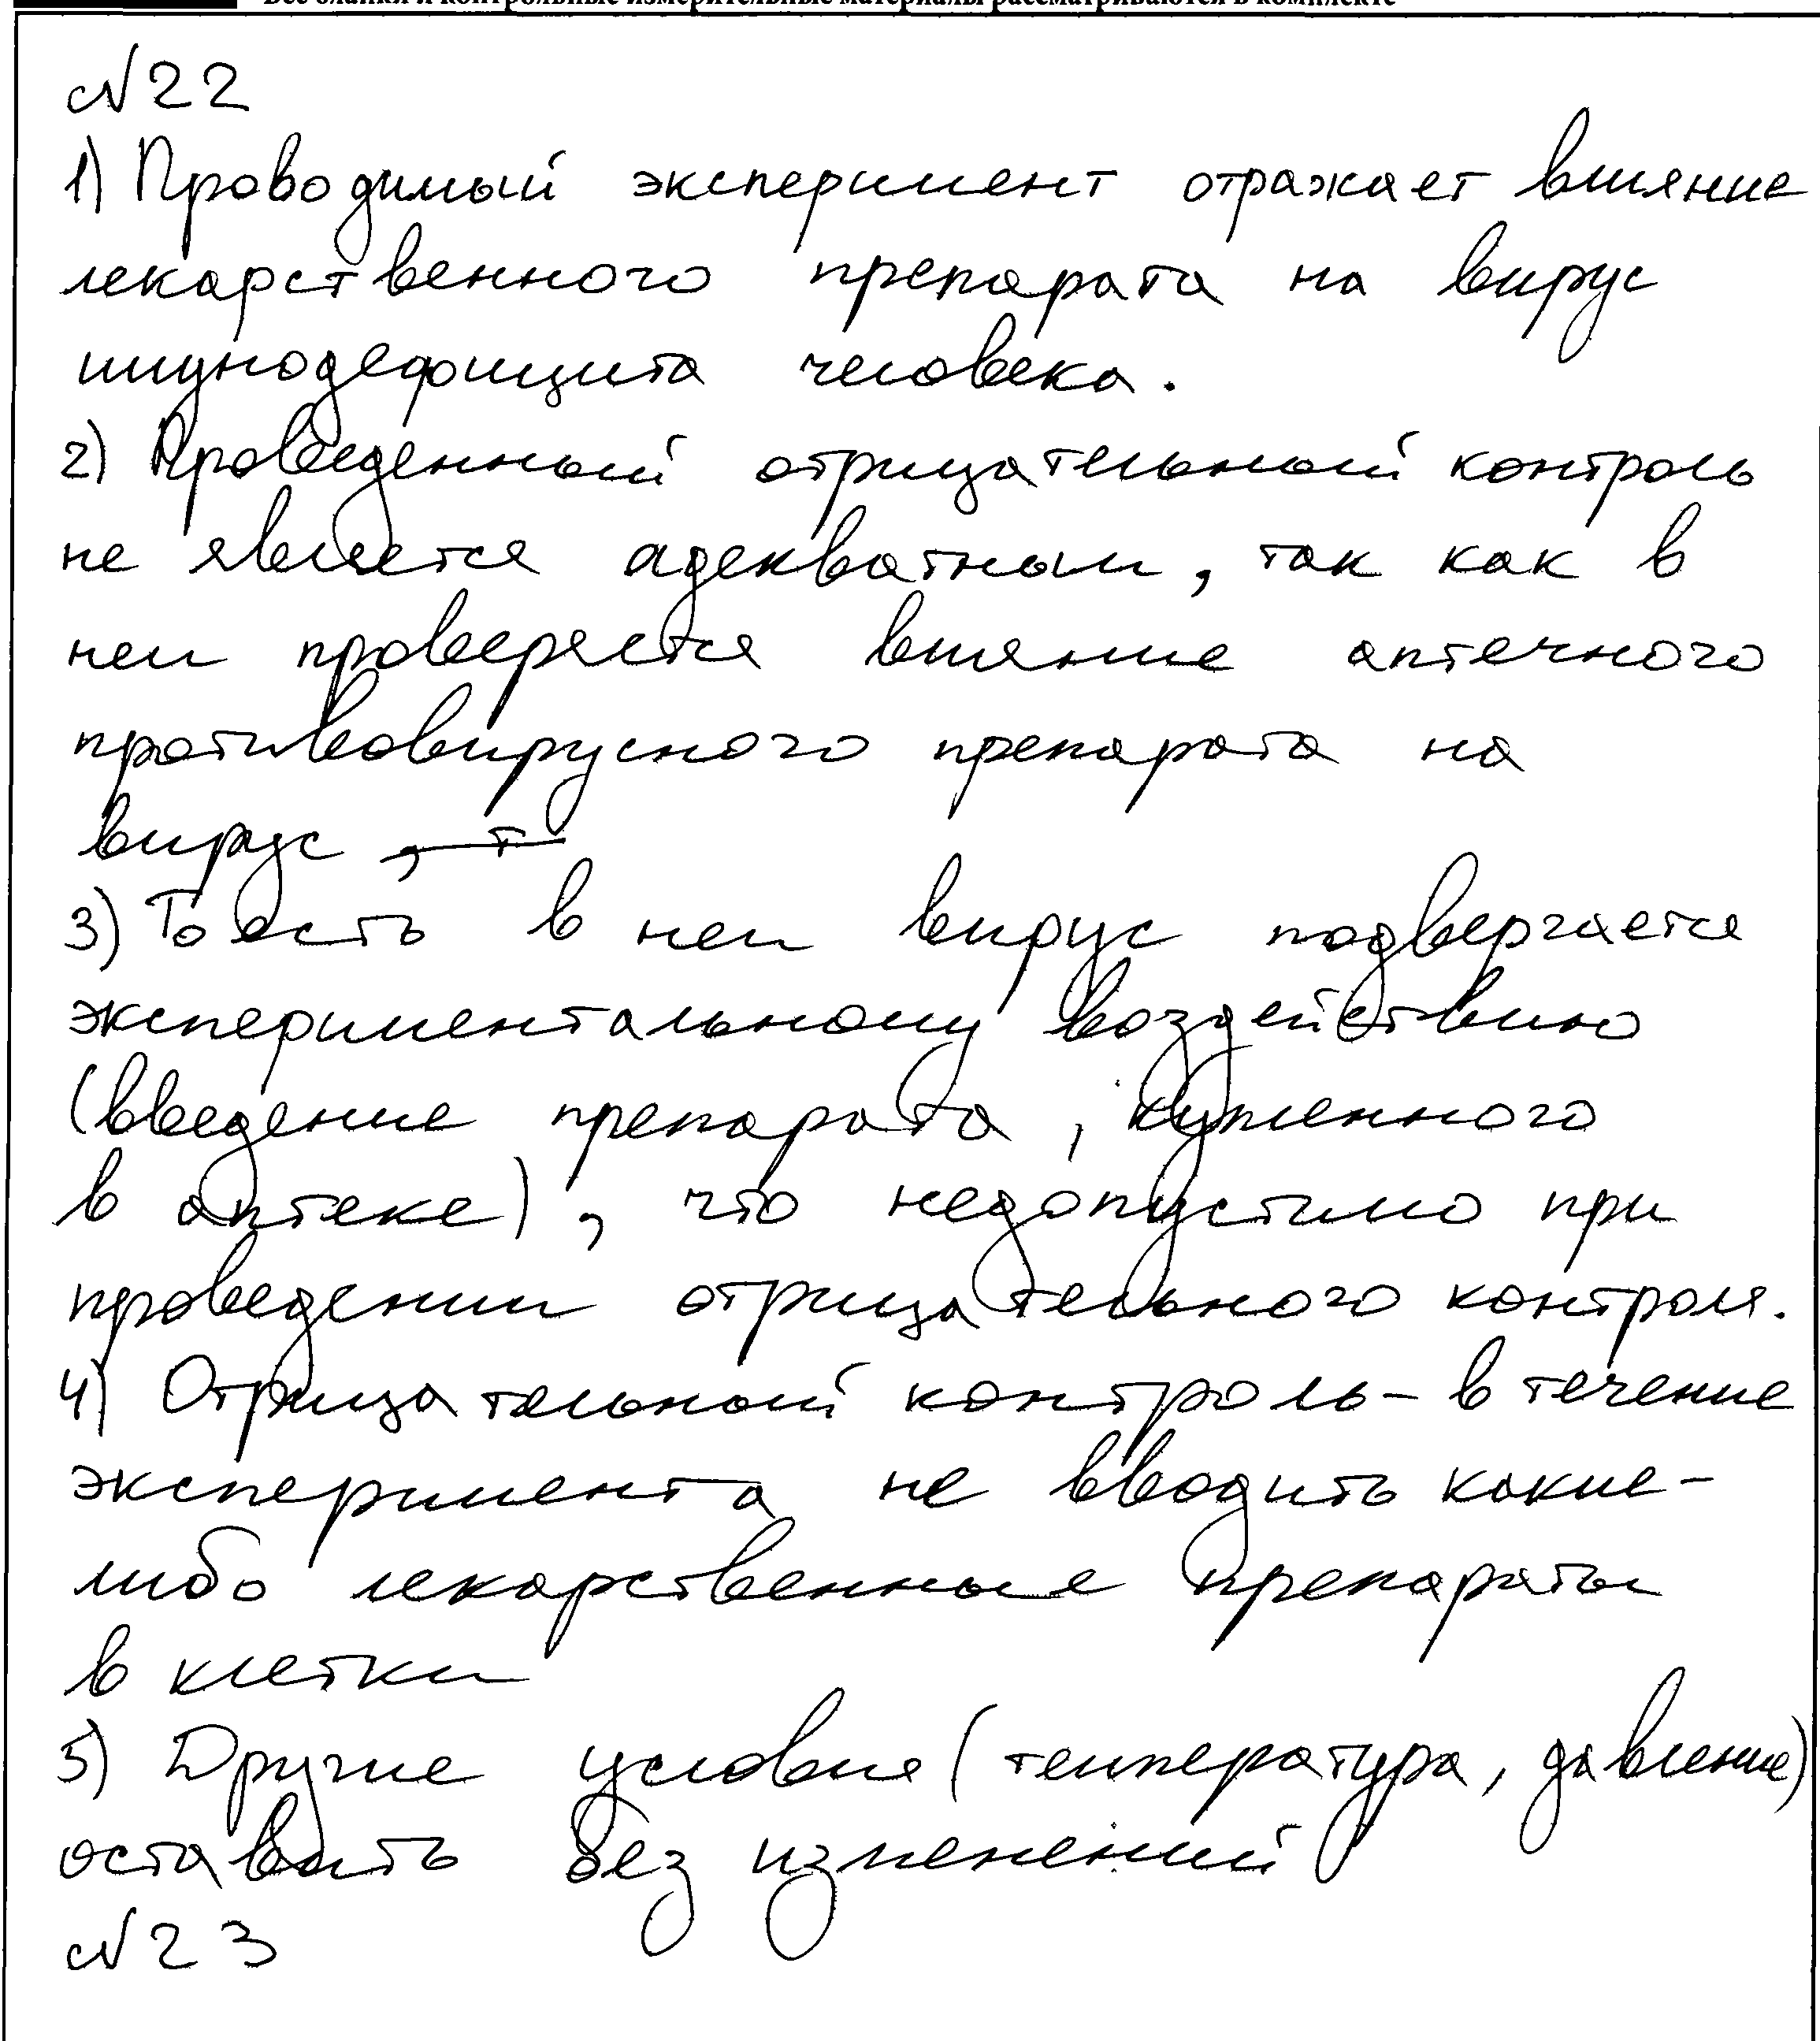 Все бланки и контрольные измерительные материалы рассматриваются в комплекте
№22
1) Проводимый эксперимент отражает влияние
лекарственного препарата на вирус
иммунодефицита человека.
2) Проведенный отрицательный контроль
не является адекватным, так как в
нем проверяется влияние аптечного
противовирусного препарата на
вирус
3) То есть в нем вирус подвергается
экспериментальному воздействию
(введение препарата, купленного
в аптеке), что недопустимо при
проведении отрицательного контроля.
4) Отрицательный контроль - в течение
эксперимента не вводить какие-
либо лекарственные препараты
в клетки
5) Другие условия (температура, давление)
оставить без изменений
№23